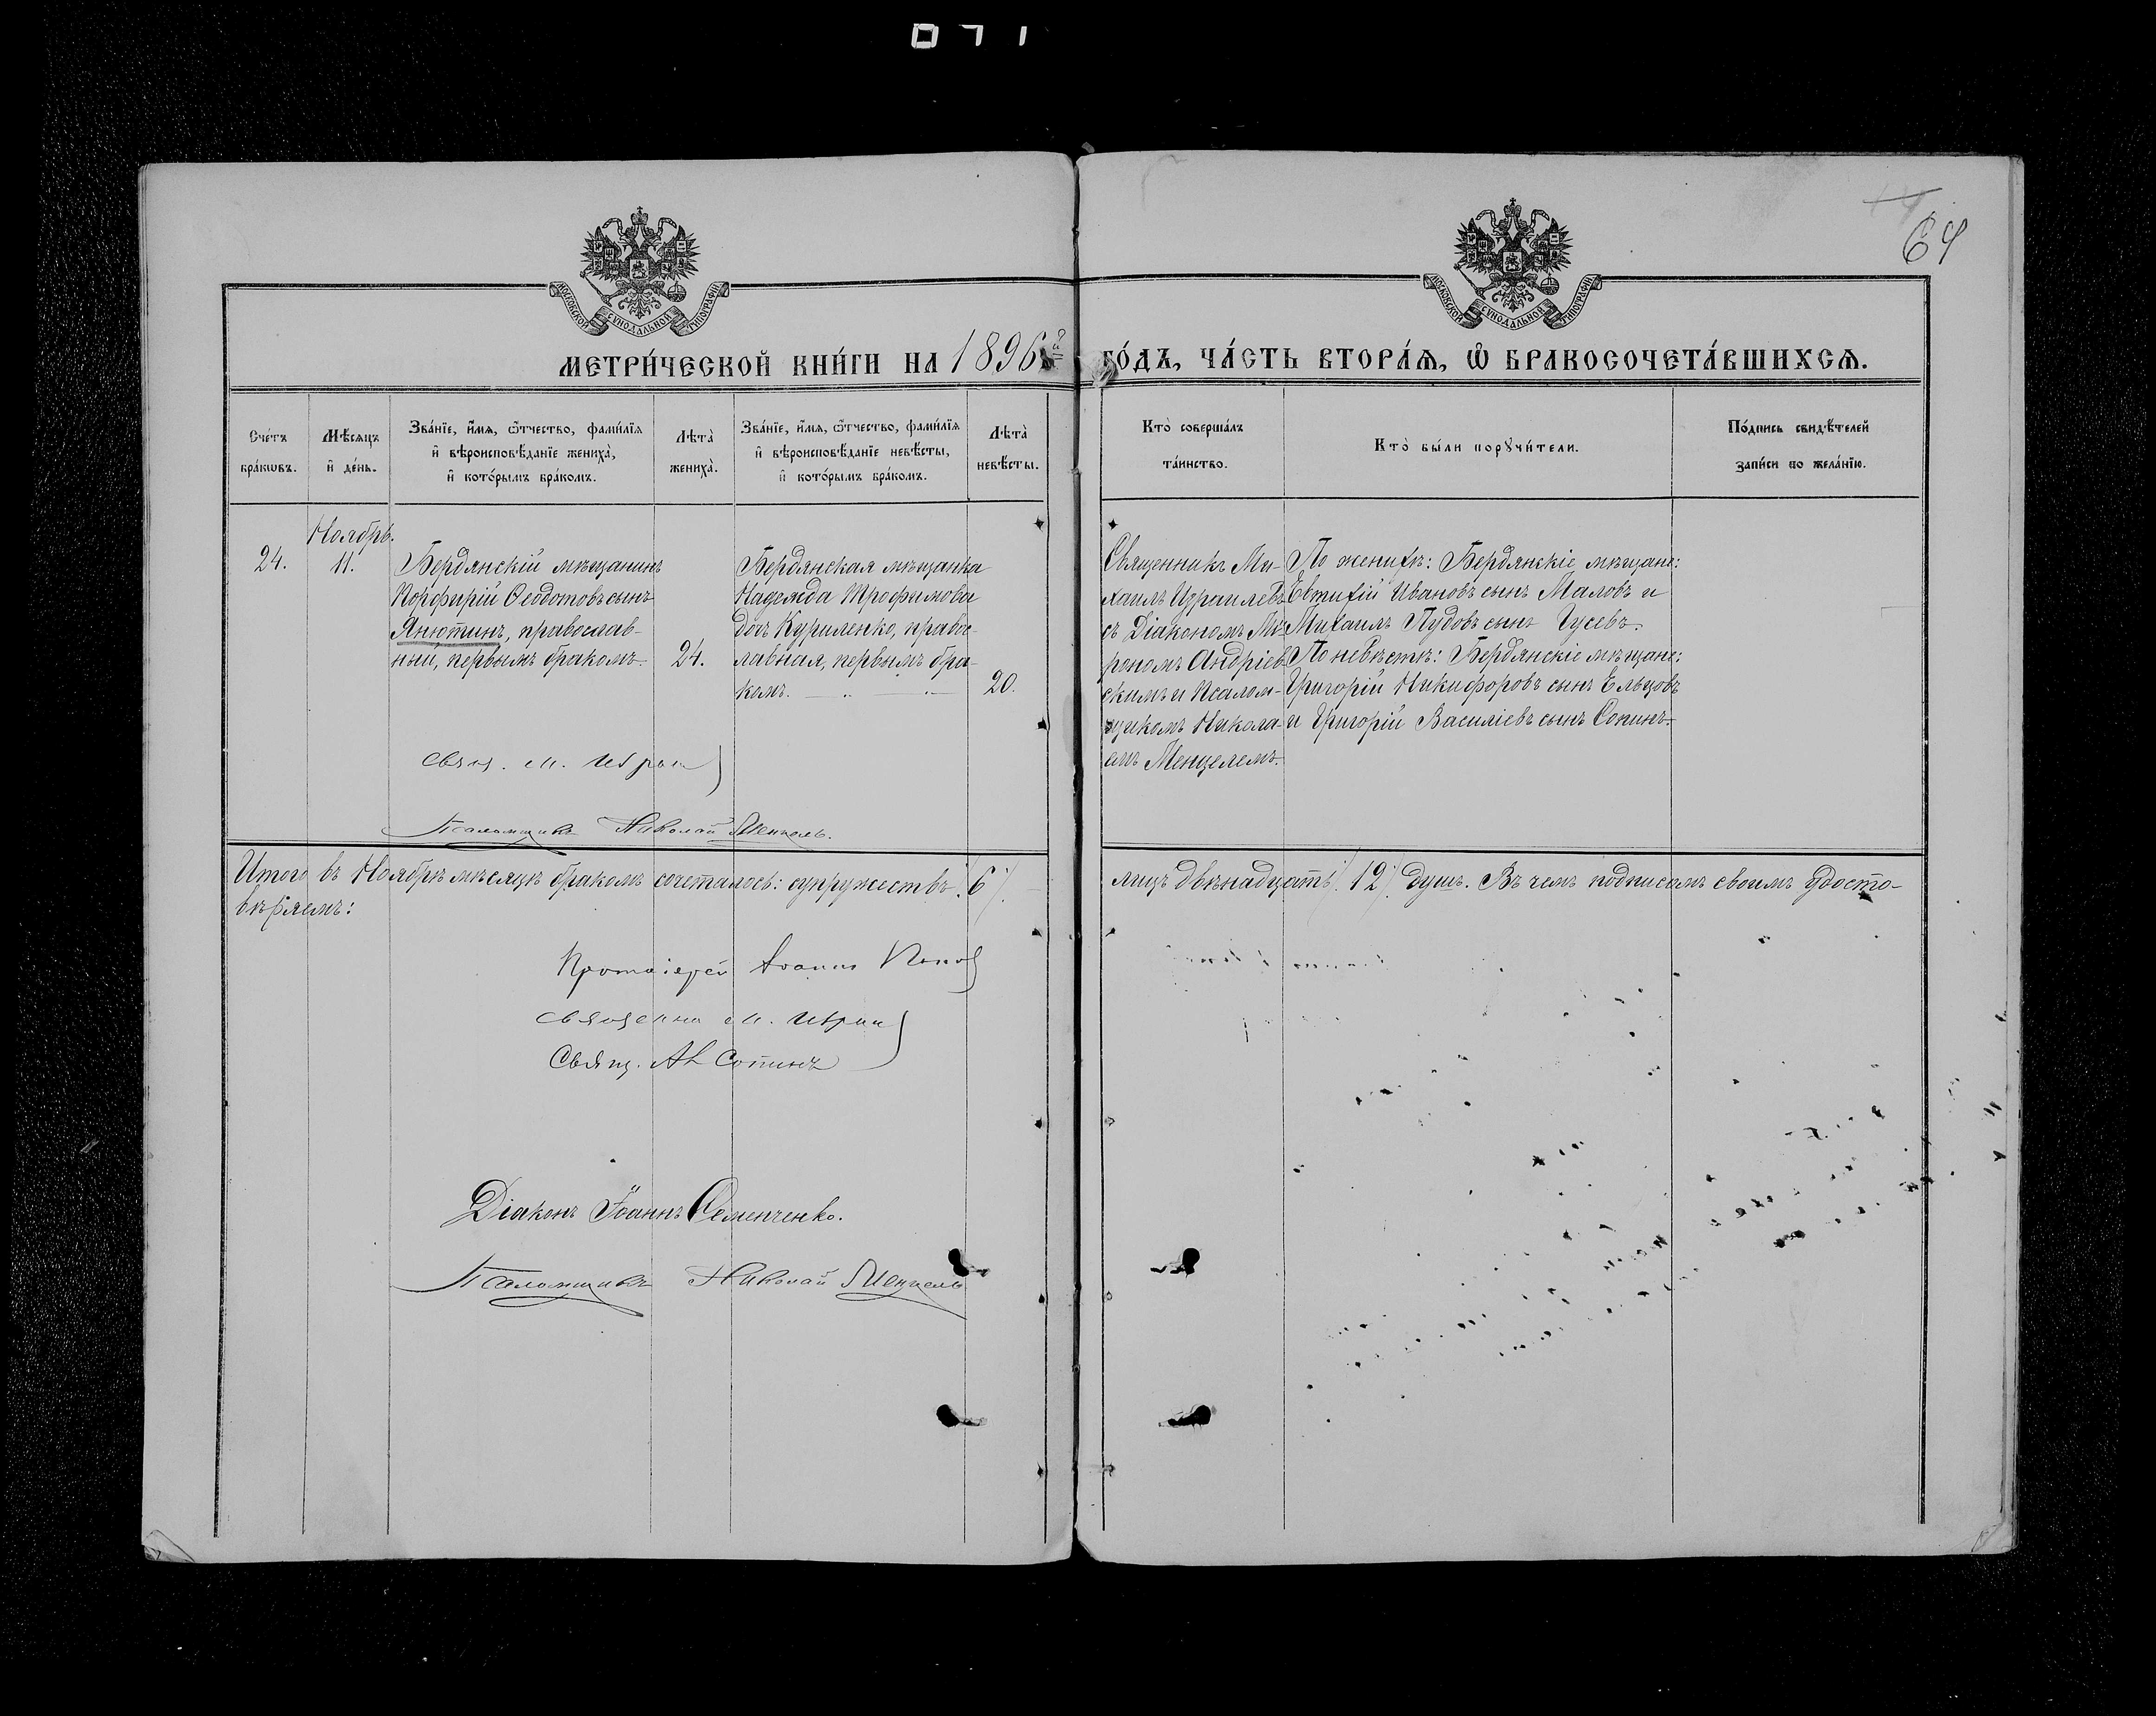 071
64
МОСКОВСКОЙ СѴНОДАЛЬНОЙ ТИПОГРАФІИ
МОСКОВСКОЙ СѴНОДАЛЬНОЙ ТИПОГРАФІИ
МЕТРИ́ЧЕСКОЙ КНИ́ГИ НА 1896й ГО́ДЪ, ЧА́СТЬ ВТОРА́Ѧ, Ѡ БРАКОСОЧЕТА́ВШИХСѦ.
Сче́тъ бра́кѡвъ.
Мѣ́сѧцъ и де́нь.
Зва́нїе, и́мѧ, ѻ́тчество, фами́лїѧ
и вѣроисповѣ́данїе жениха̀,
и кото́рымъ бра́комъ.
Лѣта̀ жениха̀.
Зва́нїе, и́мѧ, ѻ́тчество, фами́лїѧ
и вѣроисповѣ́данїе невѣ́сты,
и кото́рымъ бра́комъ.
Лѣта̀ невѣ́сты.
Кто̀ соверша́лъ та́инство.
Кто̀ бы́ли порꙋчи́тели.
По́дпись свидѣ́телей
за́писи по жела́нїю.
24.
Ноябрь.
11.
Бердянскій мѣщанинъ
Порфирій Ѳеодотовъ сынъ
Анютинъ, православ-
ный, первымъ бракомъ.
24.
Бердянская мѣщанка
Надежда Трофимова
дочь Куриленко, правос-
лавная, первымъ бра-
комъ.
20.
Священникъ Ми-
хаилъ Израилевъ
съ Діакономъ Ми-
рономъ Андріев-
скимъ и Псалом-
щикомъ Никола-
емъ Менцелемъ.
По женихѣ: Бердянскіе мѣщане:
Евтихій Ивановъ сынъ Маловъ и
Михаилъ Пудовъ сынъ Гусевъ.
По невѣстѣ: Бердянскіе мѣщане:
Григорій Никифоровъ сынъ Ельцовъ
и Григорій Василіевъ сынъ Сопинъ.
Свящ. М.
Псаломщикъ Николай Менцель.
Итого въ Ноябрѣ мѣсяцѣ бракомъ сочеталось: супружествъ /6/. лицъ двѣнадцать /12/ душъ. Въ чемъ подписомъ своимъ удосто-
вѣряемъ:
Протоіерей Іоаннъ Попов
Священник М.
Свящ. Ал Сопинъ
Діаконъ Іоаннъ Семенченко.
Псаломщикъ Николай Менцель